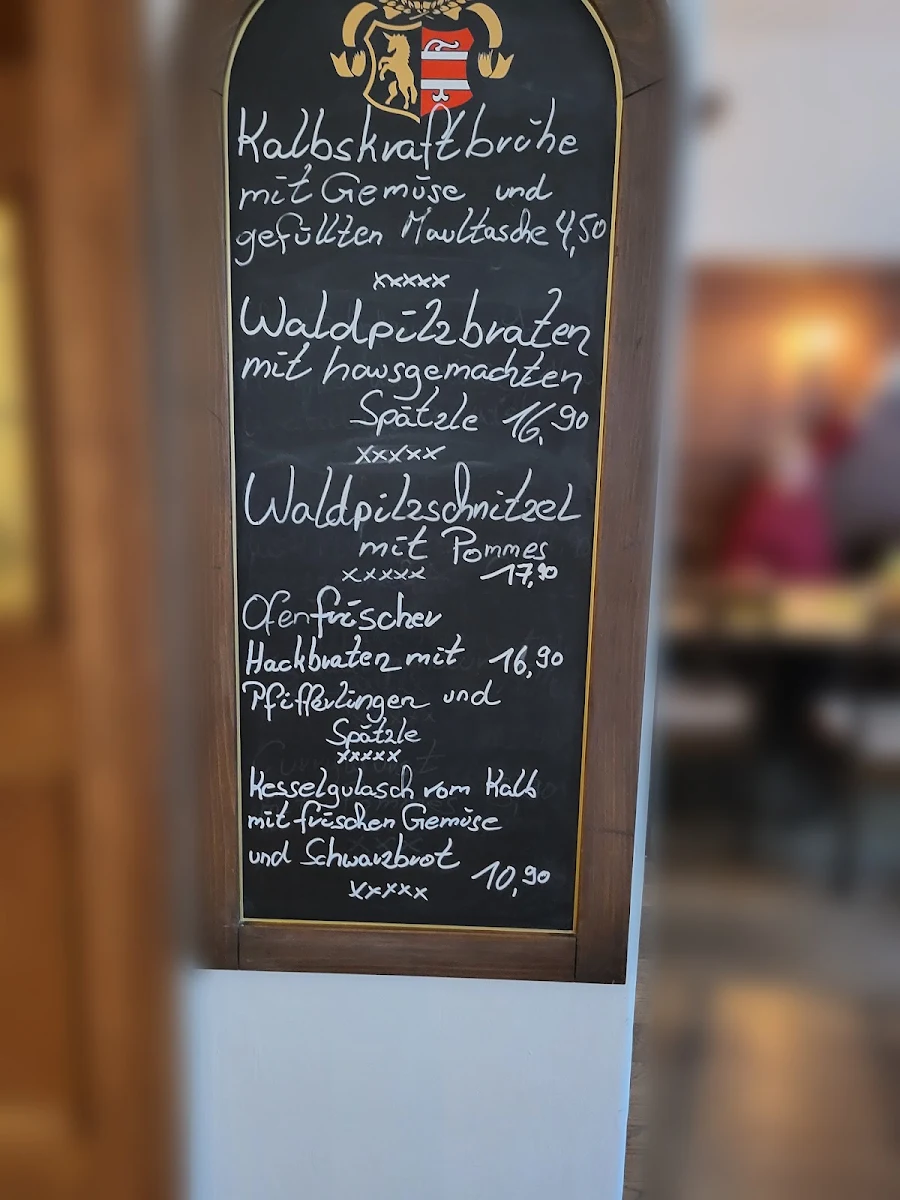 Kalbskraftbrühe
mit Gemüse und
gefüllten Maultasche 4,50
xxxxx
Waldpilzbraten
mit hausgemachten
Spätzle 16,90
xxxxx
Waldpilzschnitzel
mit Pommes
17,90
xxxxx
Ofenfrischer
Hackbraten mit 16,90
Pfifferlingen und
Spätzle
xxxxx
Kesselgulasch vom Kalb
mit frischen Gemüse
und Schwarzbrot 10,90
xxxxx